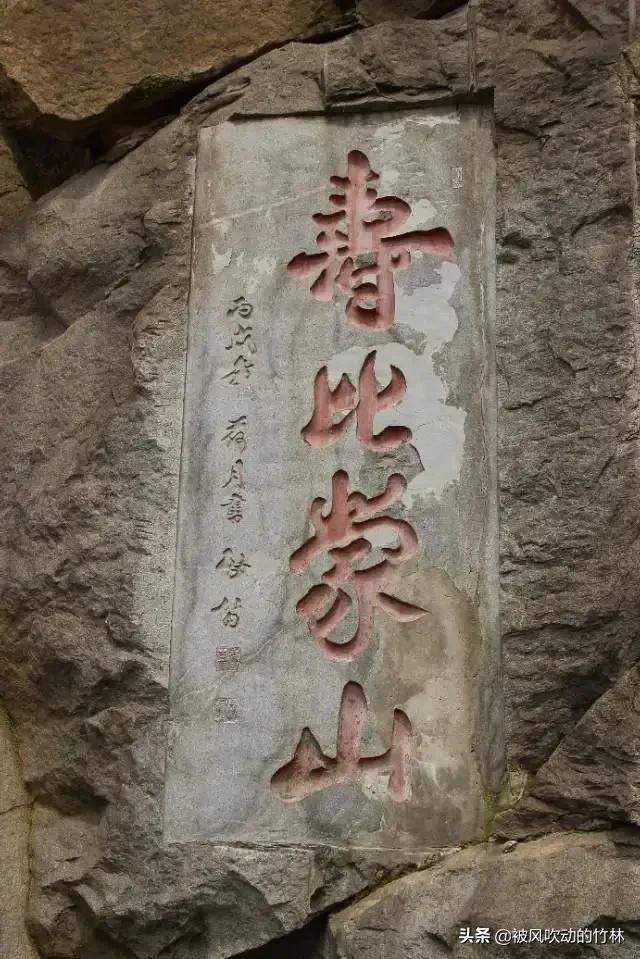 寿比蒙山
丙戌年荷月書
头条 @被风吹动的竹林